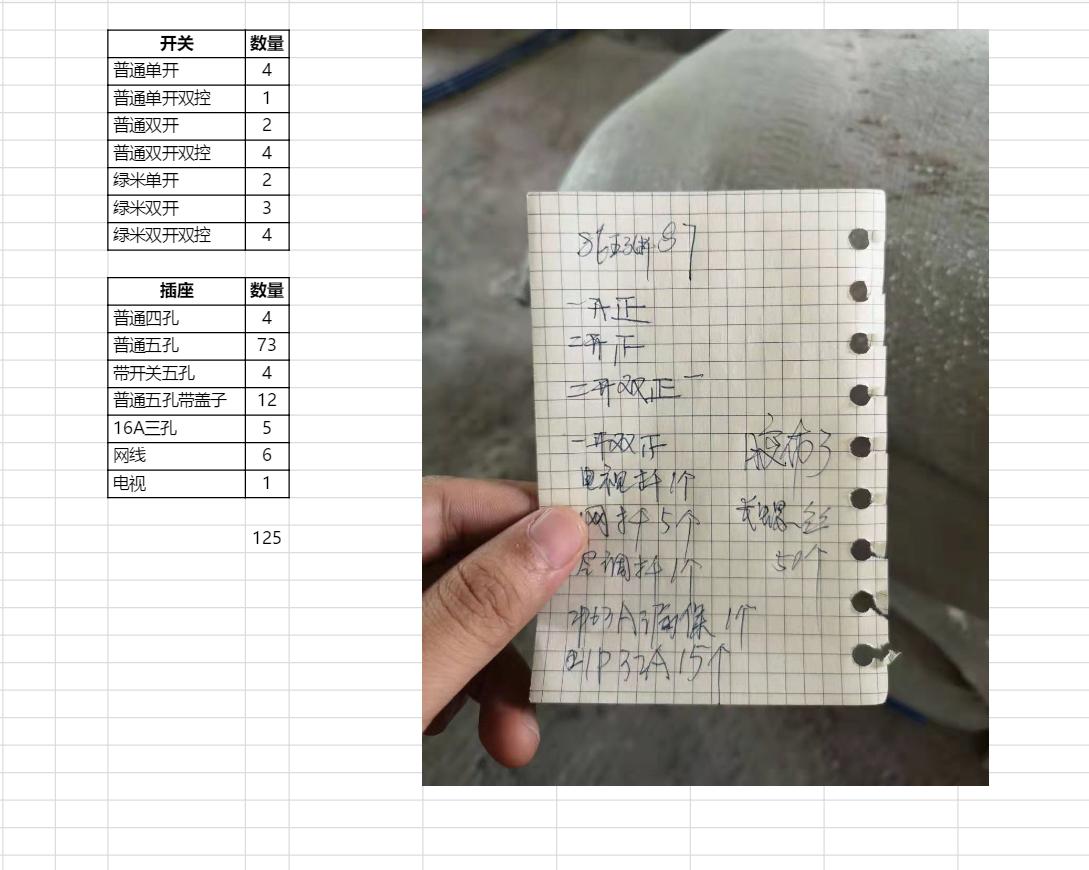 开关 数量
普通单开 4
普通单开双控 1
普通双开 2
普通双开双控 4
绿米单开 2
绿米双开 3
绿米双开双控 4
插座 数量
普通四孔 4
普通五孔 73
带开关五孔 4
普通五孔带盖子 12
16A三孔 5
网线 6
电视 1
125
87
一开正
二开正
二开双正一
一开双正
胶布3
电视插1个
网插5个
螺丝
空调插1个
50个
2P63A漏保1个
1P32A15个